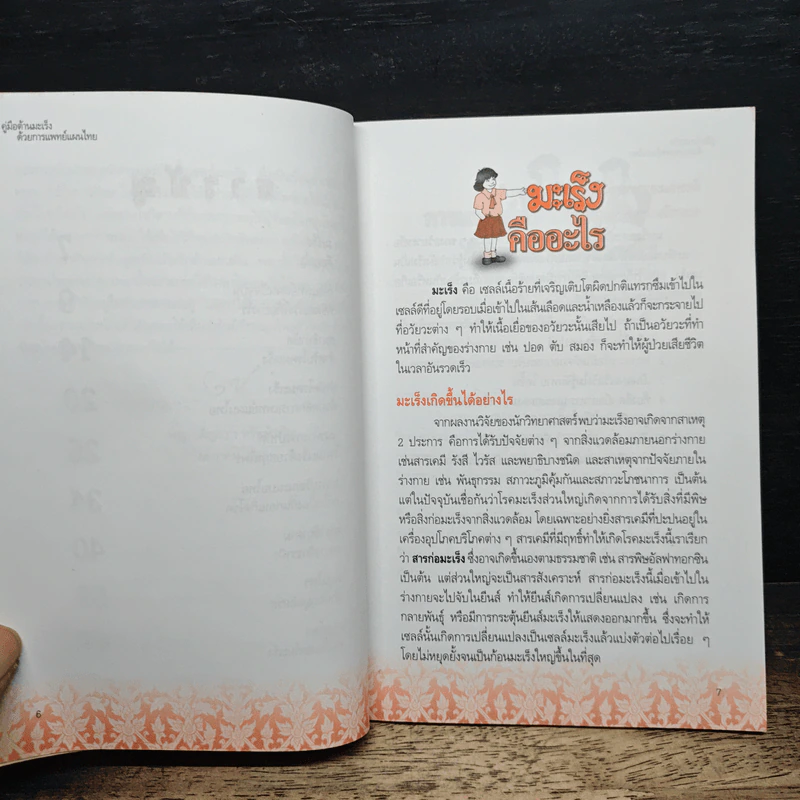 คู่มือต้านมะเร็ง
ด้วยการแพทย์แผนไทย
6
มะเร็ง
คืออะไร
มะเร็ง คือ เซลล์เนื้อร้ายที่เจริญเติบโตผิดปกติแทรกซึมเข้าไปใน
เซลล์ดีที่อยู่โดยรอบเมื่อเข้าไปในเส้นเลือดและน้ำเหลืองแล้วก็จะกระจายไป
ที่อวัยวะต่าง ๆ ทำให้เนื้อเยื่อของอวัยวะนั้นเสียไป ถ้าเป็นอวัยวะที่ทำ
หน้าที่สำคัญของร่างกาย เช่น ปอด ตับ สมอง ก็จะทำให้ผู้ป่วยเสียชีวิต
ในเวลาอันรวดเร็ว
มะเร็งเกิดขึ้นได้อย่างไร
จากผลงานวิจัยของนักวิทยาศาสตร์พบว่ามะเร็งอาจเกิดจากสาเหตุ
2 ประการ คือการได้รับปัจจัยต่าง ๆ จากสิ่งแวดล้อมภายนอกร่างกาย
เช่นสารเคมี รังสี ไวรัส และพยาธิบางชนิด และสาเหตุจากปัจจัยภายใน
ร่างกาย เช่น พันธุกรรม สภาวะภูมิคุ้มกันและสภาวะโภชนาการ เป็นต้น
แต่ในปัจจุบันเชื่อกันว่าโรคมะเร็งส่วนใหญ่เกิดจากการได้รับสิ่งที่มีพิษ
หรือสิ่งก่อมะเร็งจากสิ่งแวดล้อม โดยเฉพาะอย่างยิ่งสารเคมีที่ปะปนอยู่ใน
เครื่องอุปโภคบริโภคต่าง ๆ สารเคมีที่มีฤทธิ์ทำให้เกิดโรคมะเร็งนี้เราเรียก
ว่า สารก่อมะเร็ง ซึ่งอาจเกิดขึ้นเองตามธรรมชาติ เช่น สารพิษอัลฟาทอกซิน
เป็นต้น แต่ส่วนใหญ่จะเป็นสารสังเคราะห์ สารก่อมะเร็งนี้เมื่อเข้าไปใน
ร่างกายจะไปจับในยีนส์ ทำให้ยีนส์เกิดการเปลี่ยนแปลง เช่น เกิดการ
กลายพันธุ์ หรือมีการกระตุ้นยีนส์มะเร็งให้แสดงออกมากขึ้น ซึ่งจะทำให้
เซลล์นั้นเกิดการเปลี่ยนแปลงเป็นเซลล์มะเร็งแล้วแบ่งตัวต่อไปเรื่อย ๆ
โดยไม่หยุดยั้งจนเป็นก้อนมะเร็งใหญ่ขึ้นในที่สุด
7